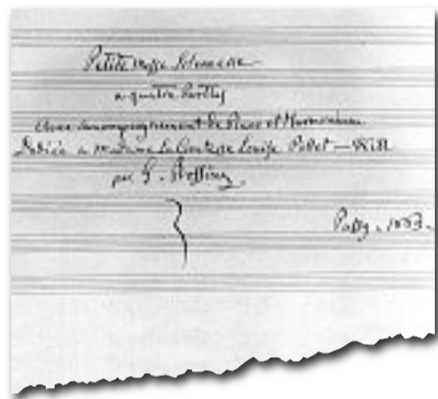 Petite Messe Solennelle
a quatre Parties
avec accompagnement de Piano et Harmonium
Dediée a Madame la Comtesse Louise Pillet-Will
par G. Rossini
Passy. 1863.